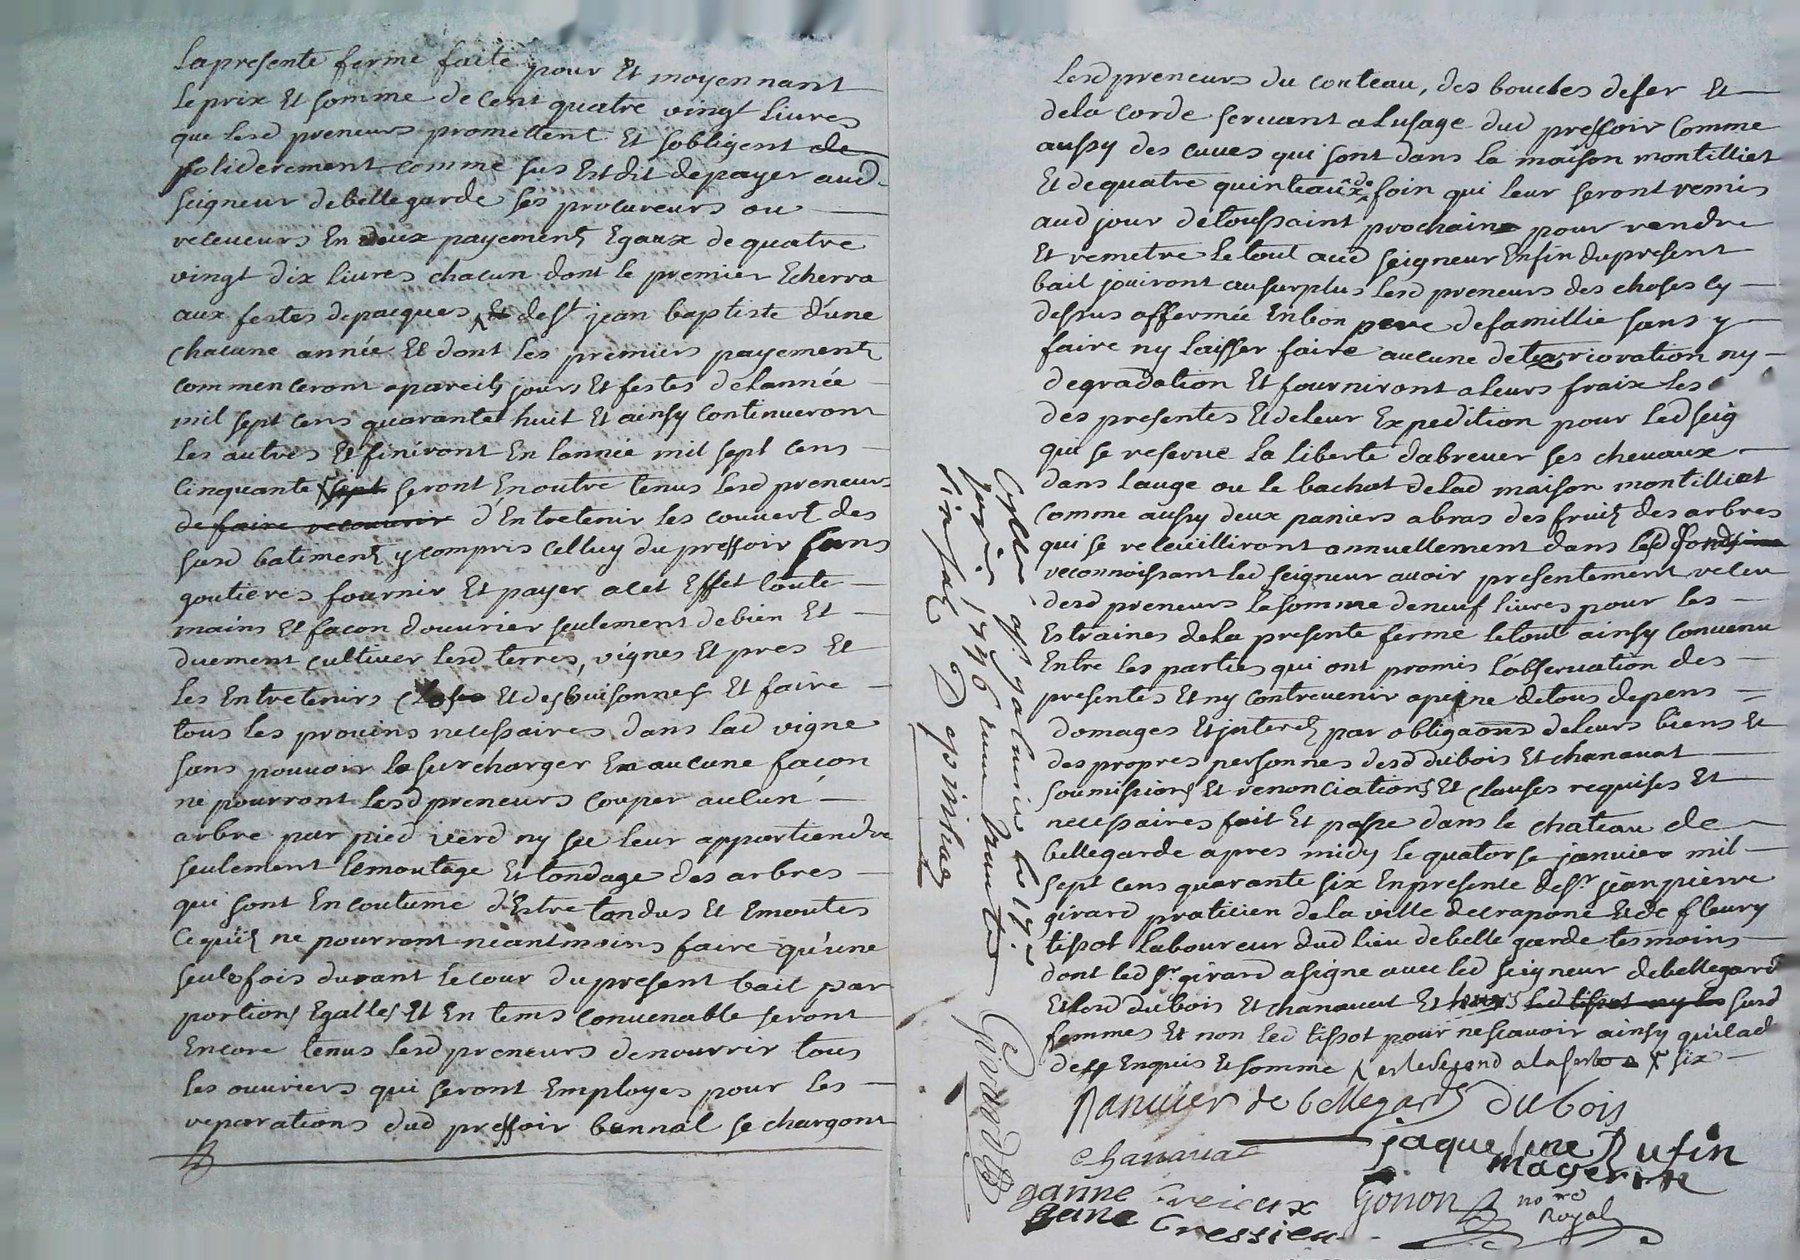 La presente ferme faite pour Et moyennant
le prix Et somme de cent quatre vingt livres
que lesd preneurs promettent Et sobligent de
soliderement comme sus Est dit depayer aud
seigneur debellegarde ses procureurs ou
receueurs En deux payements Egaux de quatre
vingt dix livres chacun dont le premier Echerra
aux festes depacques Et de st jean baptiste d'une
chacune année Et dont les premiers payements
commenceront apareils jours Et festes delannée
mil sept cens quarante huit Et ainsy continueront
les autres Et finiront En lannée mil sept cens
cinquante sept seront Enoutre tenus lesd preneurs
de faire recouurir d'Entretenir les couverts des
susd batiments y compris celluy du pressoir sans
goutieres fournir Et payer acet Effet toute
mains Et facon douurier seulement debien Et
duement cultiuer lesd terres, vignes Et pres Et
les Entretenirs closes Et desbuisonnes Et faire
tous les prouins necessaires dans lad vigne
sans pouuoir la surcharger En aucune façon
ne pourront lesd preneurs couper aucun
arbre par pied verd ny sec leur appartiendra
seulement lemontage Et tondage des arbres
qui sont Encoutume d'Estre tondus Et Emontes
cequils ne pourront neantmoins faire qu'une
seule fois durant le cour du present bail par
portions Egalles Et En tems conuenable seront
Encore tenus lesd preneurs denourrir tous
les ouuriers qui seront Employes pour les
reparations dud pressoir bannal se chargont
lesd preneurs du couteau, des boucles defer Et
dela corde seruant alusage dud pressoir comme
aussy des cuues qui sont dans la maison montilliet
Et dequatre quinteaux de foin qui leur seront remis
aud jour detoussaint prochain pour rendre
Et remetre letout aud seigneur Enfin dupresent
bail jouiront ausurplus lesd preneurs des choses cy
dessus affermée Enbon pere defamillie sans y
faire ny laisser faire aucune deterioration ny
degradation Et fourniront aleurs fraix les
des presentes Et deleur Expedition pour led seig
qui se reserue la liberté dabreuer ses cheuaux
dans lauge ou le bachat delad maison montilliet
comme aussy deux paniers abras des fruits des arbres
qui se receuilliront annuellement dans lesd fonds
reconnoissant led seigneur auoir presentement receu
desd preneurs la somme deneuf livres pour les
Estraines dela presente ferme letout ainsy conuenu
Entre les parties qui ont promis l'obseruation des
presentes Et ny contreuenir apeine detous depens
domages Et interets par obligaons deleurs biens Et
des propres personnes desd dubois Et chanauat
soumissions Et renonciations Et clauses requises Et
necessaires fait Et passe dans le chateau de
bellegarde apres midy le quatorse januier mil
sept cens quarante six Enpresence de sr. jean pierre
girard praticien dela ville decrapone Et de fleury
tissot laboureur dud lieu debellegarde tesmoins
dont led sr. girard asigne auec led seigneur debellegard
Et lesd dubois Et chanauat Et leurs led tissot ny les susd
femmes Et non led tissot pour nescauoir ainsy quilad
desp Enquis Et somme six
Ranuier de bellegard dubois
chanauat jaqueline Rufin
magerin
ganne Creicux Gonon no re
Jane Cressieu Royal
Girard
Controllé a st galmier le 17e
januier 1746 receu trente
six sols D'apinhac